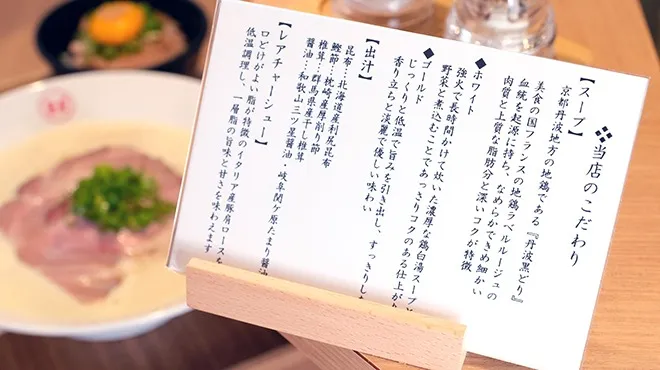 ❖当店のこだわり
【スープ】
京都丹波地方の地鶏である『丹波黒どり』
美食の国フランスの地鶏ラベルルージュの
血統を起源に持ち、なめらかできめ細かい
肉質と上質な脂肪分と深いコクが特徴
◆ホワイト
強火で長時間かけて炊いた濃厚な鶏白湯スープ
野菜と煮込むことであっさりコクのある仕上が
◆ゴールド
じっくりと低温で旨みを引き出し、すっきりした
香り立ちと淡麗で優しい味わい
【出汁】
昆布…北海道産利尻昆布
鰹節…枕崎産厚削り節
椎茸…群馬県産干し椎茸
醤油…和歌山三ツ星醤油・岐阜関ケ原たまり醤油
【レアチャーシュー】
口どけがよい脂が特徴のイタリア産豚肩ロースを
低温調理し、一層脂の旨味と甘さを味わえます